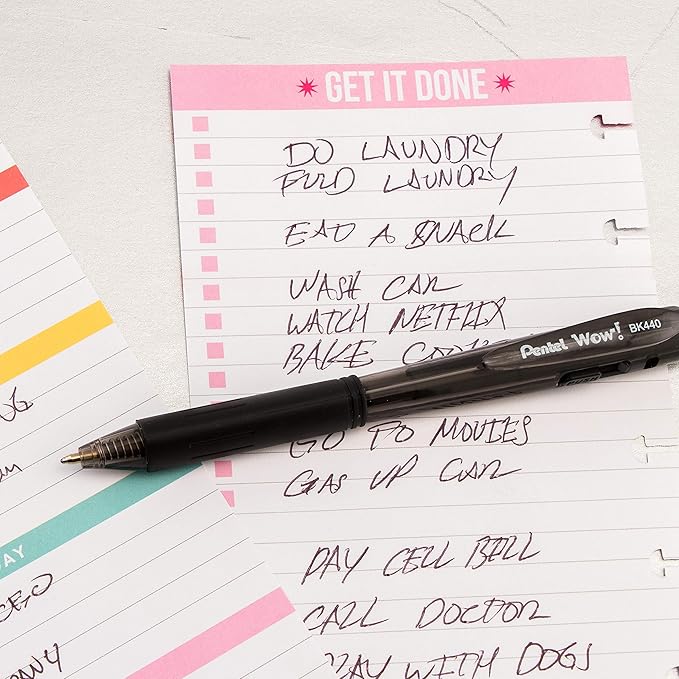 GET IT DONE
DO LAUNDRY
FOLD LAUNDRY
EAT A SNACK
WASH CAR
WATCH NETFLIX
BAKE
Pentel Wow! BK440
GO TO MOVIES
GAS UP CAR
PAY CELL BILL
CALL DOCTOR
WITH DOGS
AY
CEO